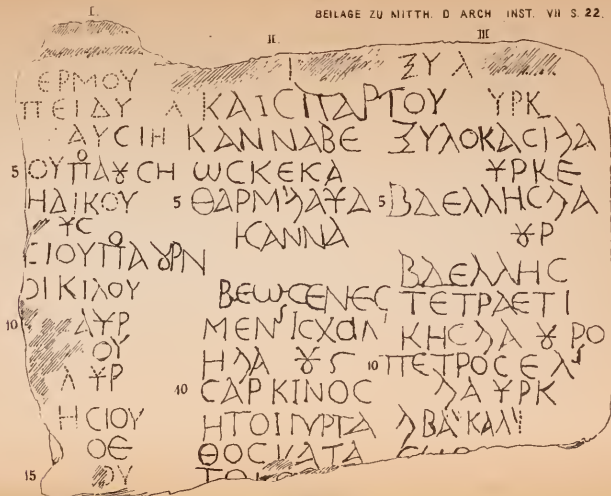 BEILAGE ZU MITTH. D ARCH INST. VII S. 22.
I.
ΕΡΜΟΥ
ΠΕΙΔΥ Λ
ΑΥϹΙΗ
5 ΟΥΠΑȣϹΗ
ΗΔΙΚΟΥ
ȣϹ
ϹΙΟΥΠΑȣΡΝ
ΟΙΚΙΛΟΥ
10 ΑΥΡ
ΟΥ
ΛΥΡ
ΗϹΙΟΥ
ΟΕ
15 ΟΥ
II.
ΚΑΙϹΠΑΡΤΟΥ
ΚΑΝΝΑΒΕ
ΩϹΚΕΚΑ
5 ΘΑΡΜ
ΚΑΝΝΑ
ΒΕΩϹΕΝΕϹ
ΜΕΝ ΙϹΧΑΛ
ΗλΑ ȣϚ
10 ϹΑΡΚΙΝΟϹ
ΗΤΟΙΓΥΡΓΑ
ΘΟϹΚΑΤΑ
III
ΞΥΛ
ΥΡΚ
ΞΥΛΟΚΑϹΙλΑ
ΥΡΚΕ
5 ΒΔΕΛΛΗϹλΑ
ȣΡ
ΒΔΕΛΛΗϹ
ΤΕΤΡΑΕΤΙ
ΚΗϹλΑ ȣΡΟ
10 ΠΕΤΡΟϹΕΛ
λΑ ΥΡΚ
λΒΑΚΑΛ